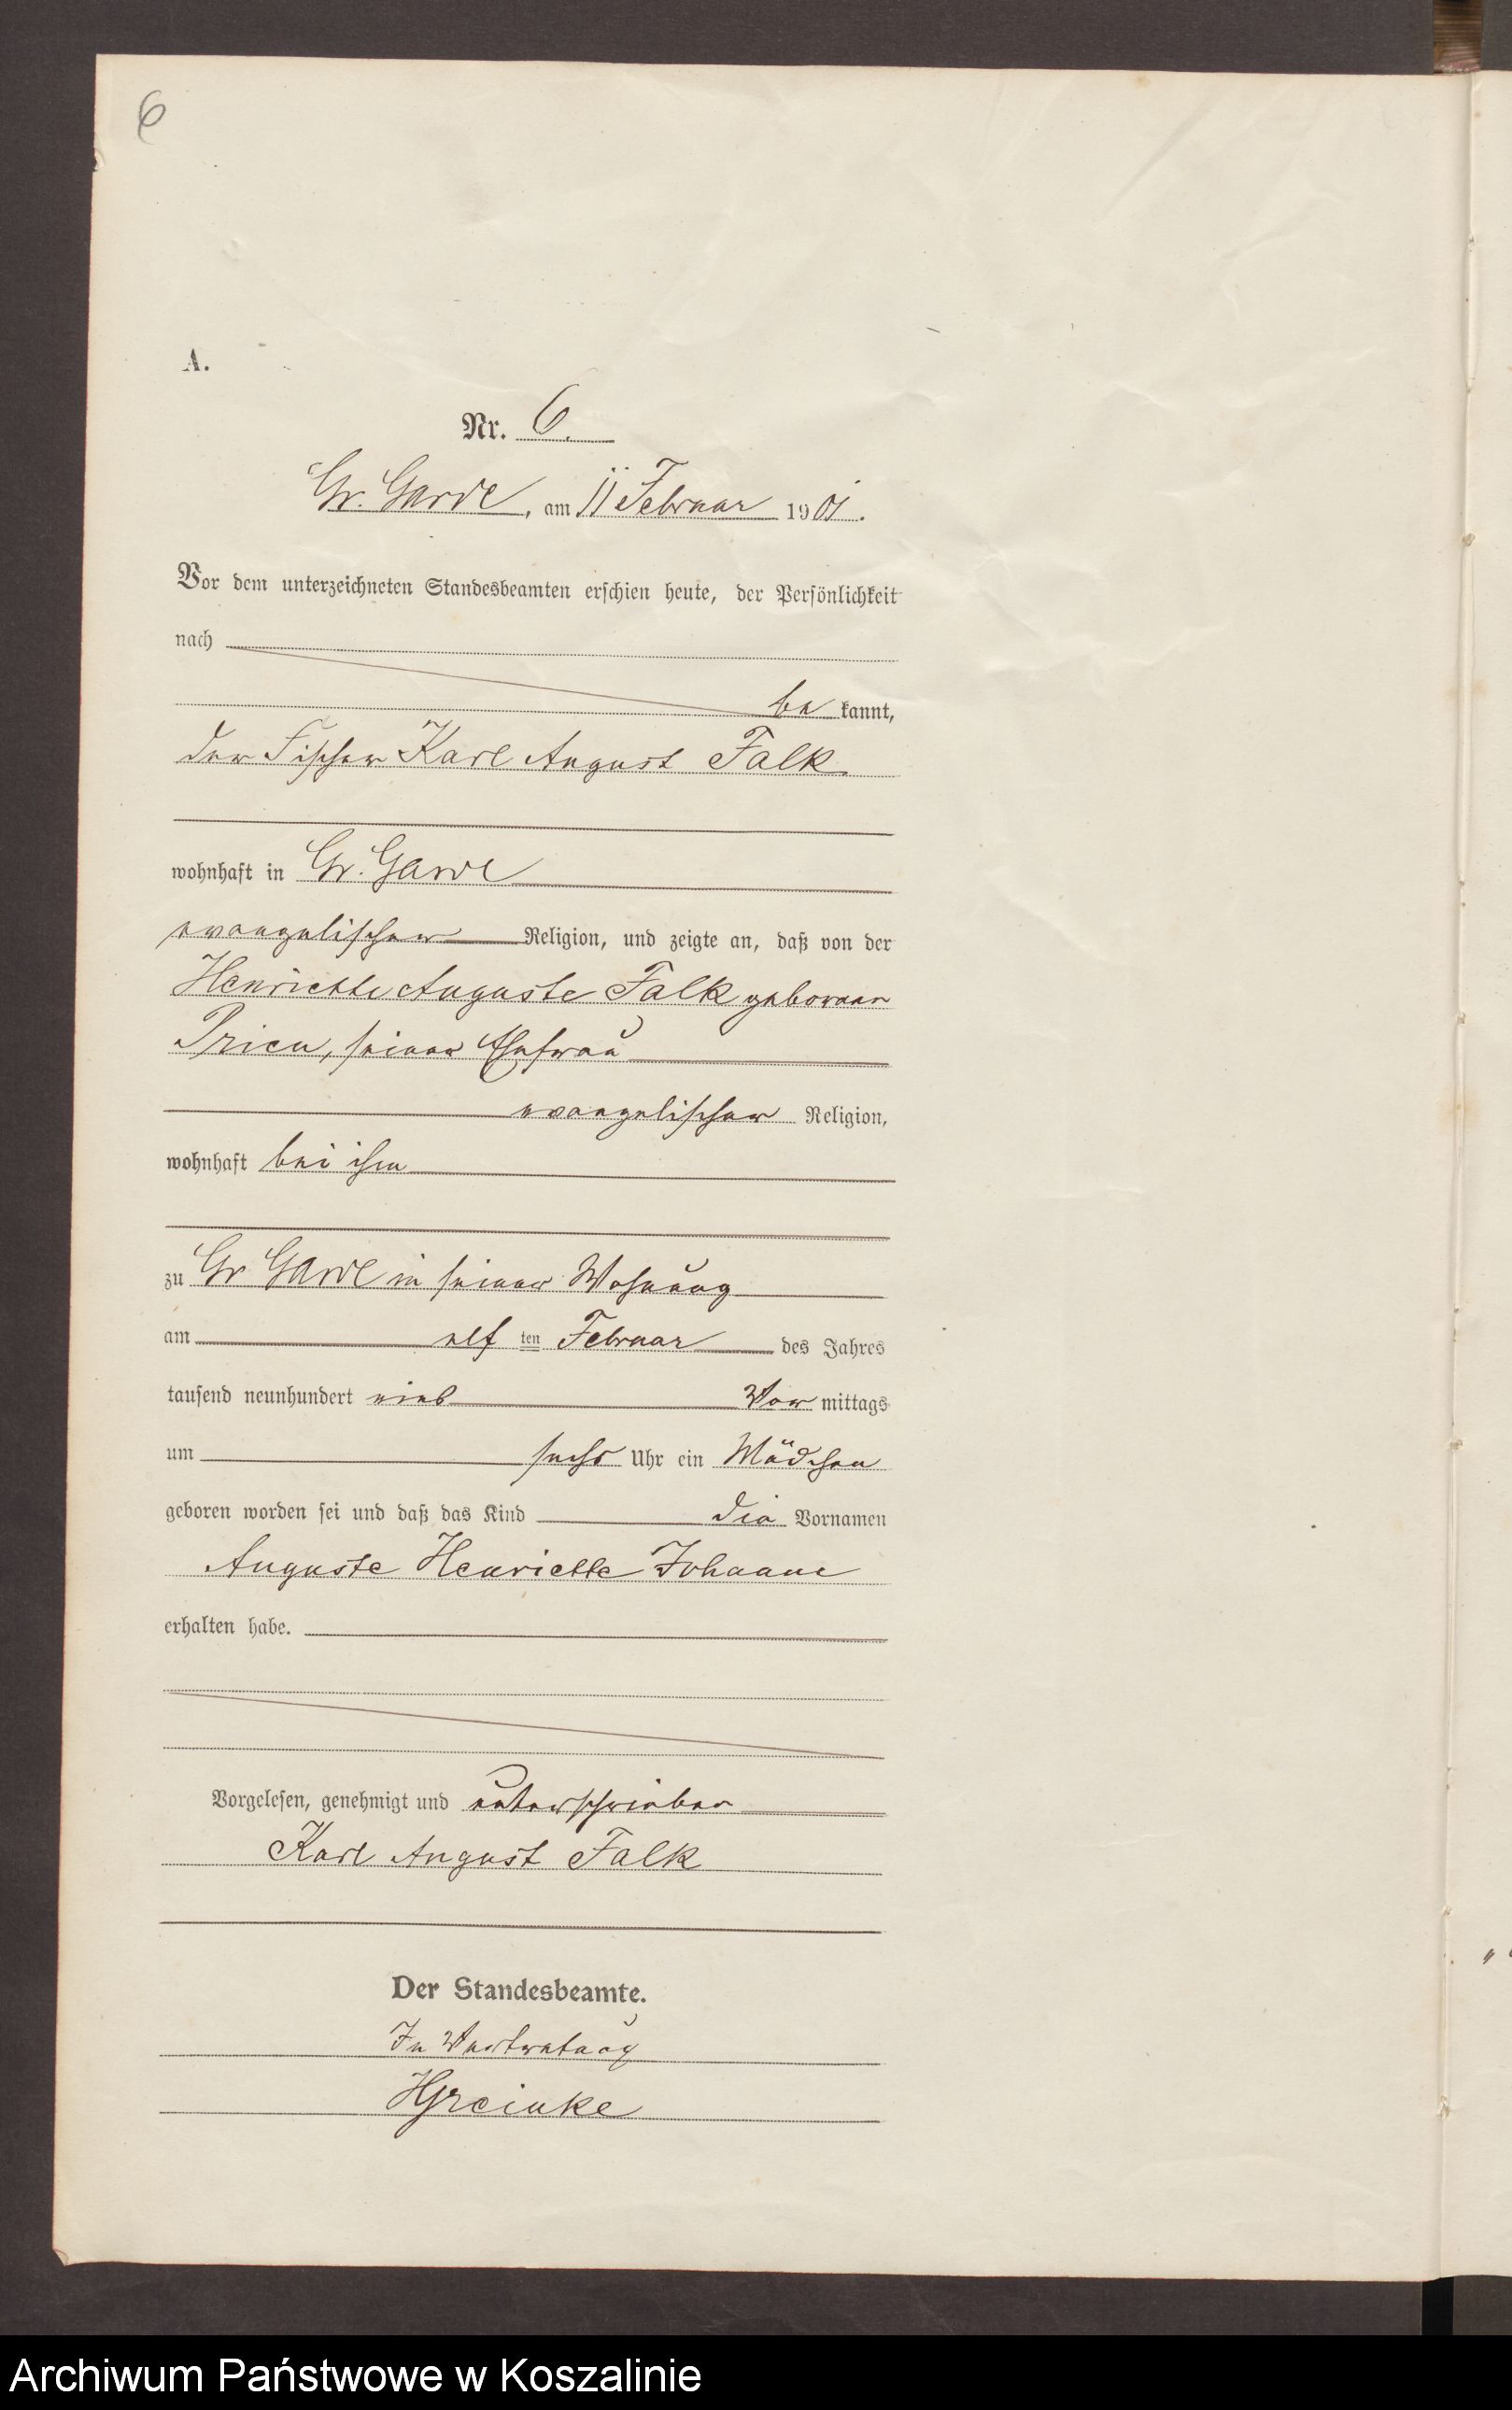 6
A.
Nr. 6.
Gr. Garde, am 11 Februar 1901.
Vor dem unterzeichneten Standesbeamten erschien heute, der Persönlichkeit
nach
be kannt,
der Fischer Karl August Falk
wohnhaft in Gr. Garde
evangelischer Religion, und zeigte an, daß von der
Henriette Auguste Falk geboren
Prien, seiner Ehefrau
evangelischer Religion,
wohnhaft bei ihm
zu Gr Garde in seiner Wohnung
am elf ten Februar des Jahres
tausend neunhundert eins Vor mittags
um sechs Uhr ein Mädchen
geboren worden sei und daß das Kind die Vornamen
Auguste Henriette Johanne
erhalten habe.
Vorgelesen, genehmigt und unterschrieben
Karl August Falk
Der Standesbeamte.
In Vertretung
Archiwum Państwowe w Koszalinie